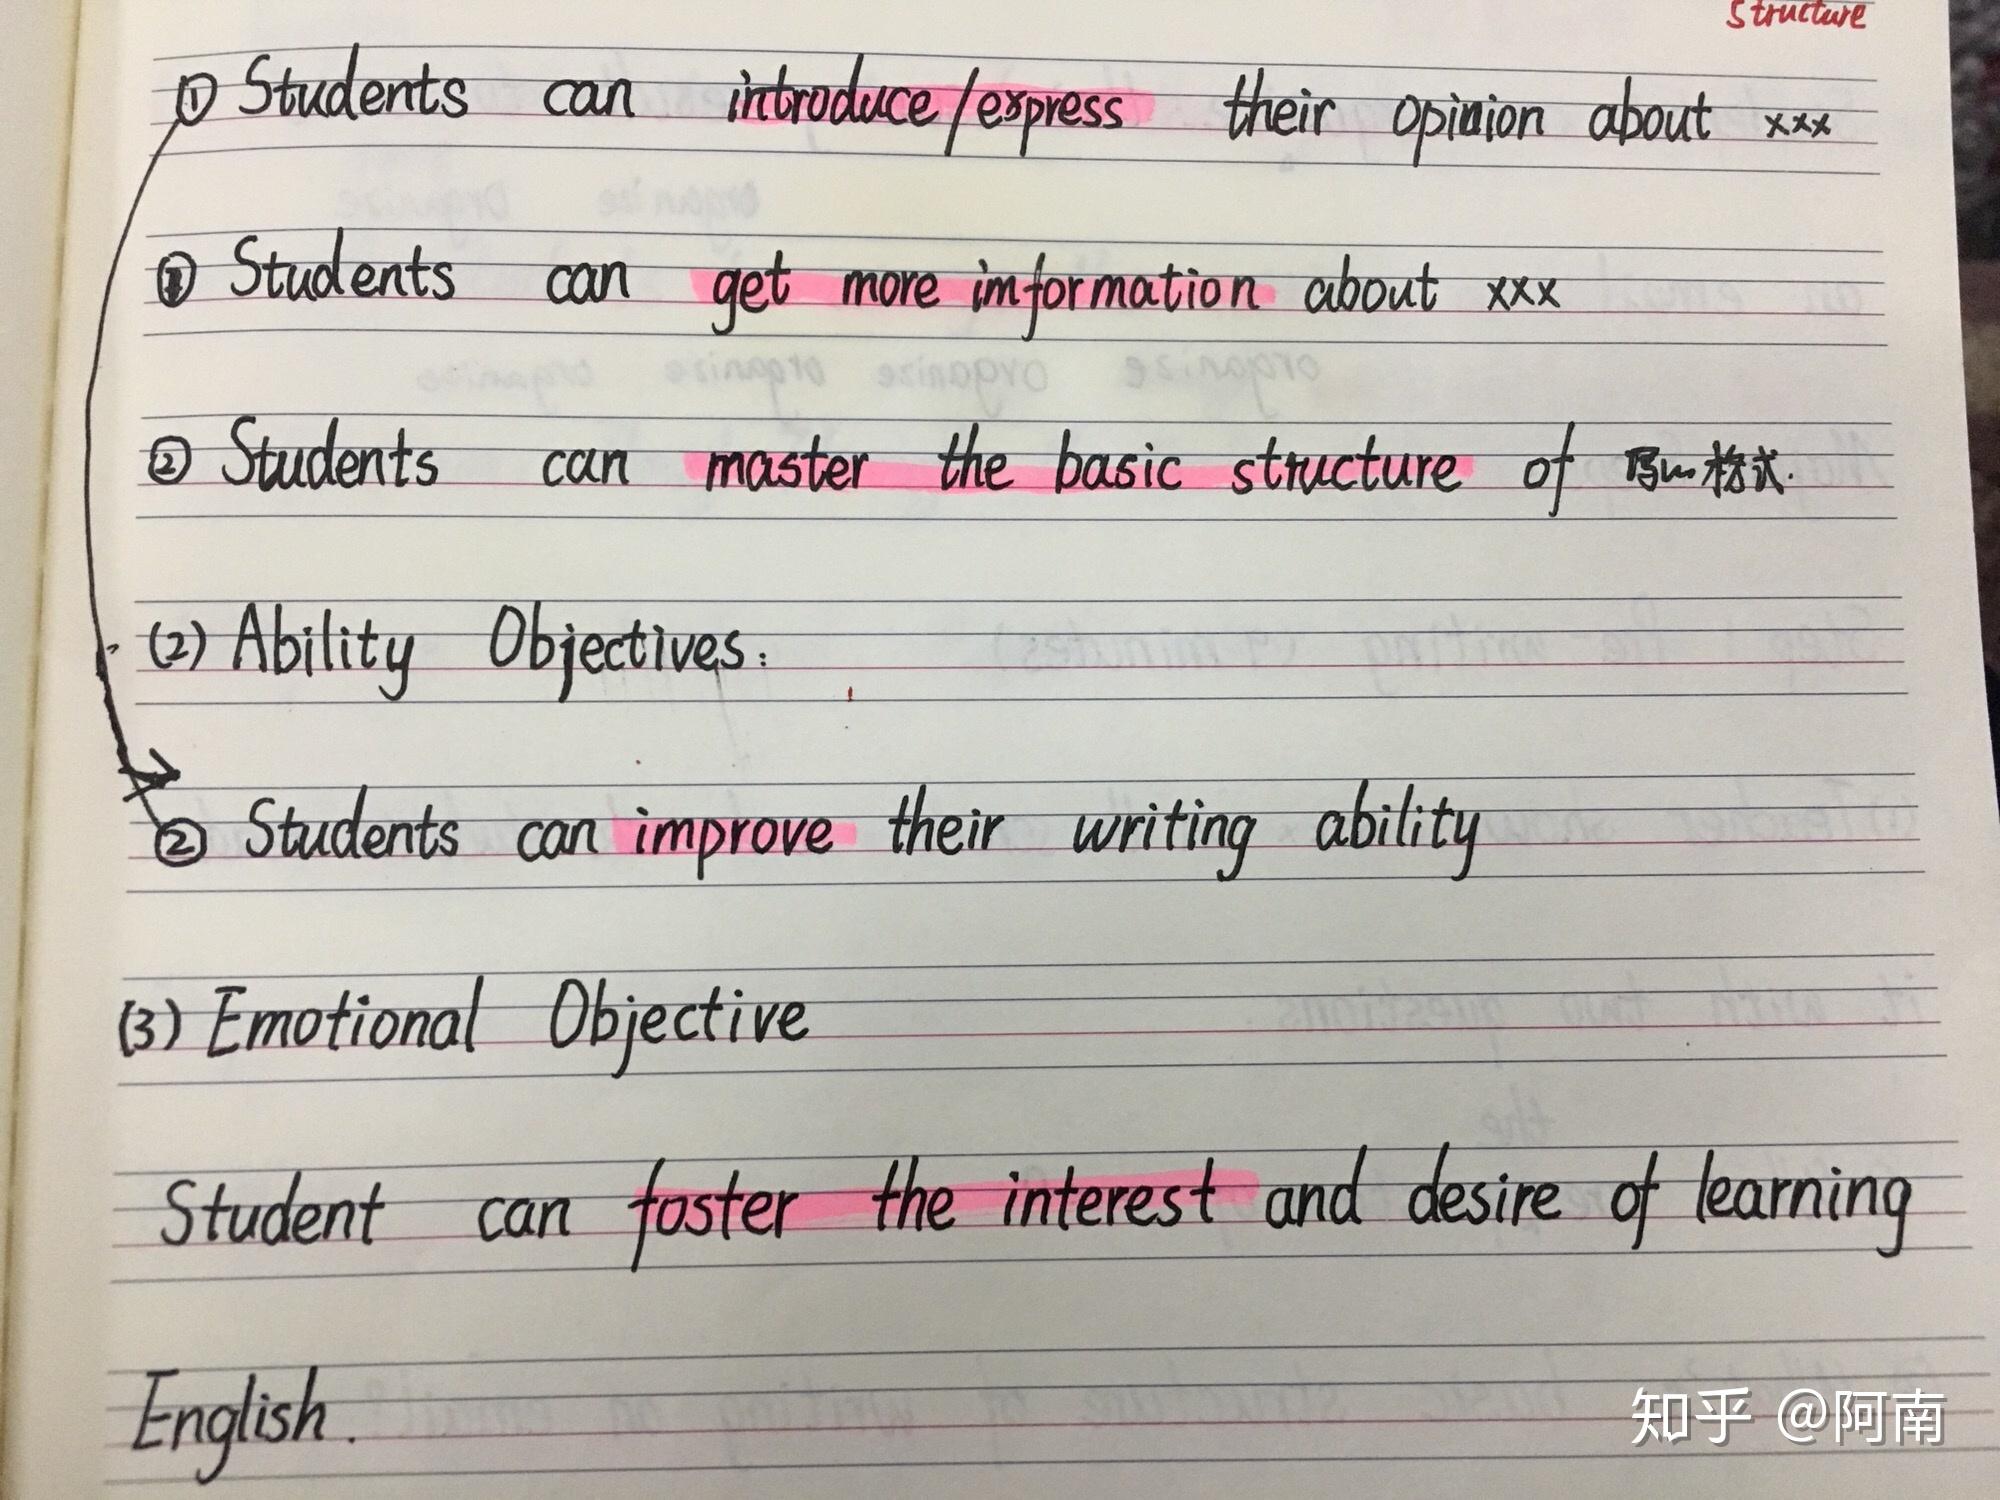 Structure
① Students can introduce/express their opinion about xxx
① Students can get more imformation about xxx
② Students can master the basic structure of 写…格式.
(2) Ability Objectives:
② Students can improve their writing ability
(3) Emotional Objective
Student can foster the interest and desire of learning
English.
知乎 @阿南